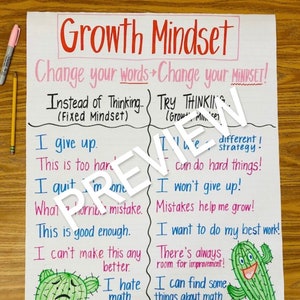 Growth Mindset
Change your WORDS → Change your MINDSET!
Instead of Thinking..
(Fixed Mindset)
TRY THINKING...
(Growth Mindset)
I give up.
I'll use different strategy!
This is too hard
I can do hard things!
I quit I'm done.
I won't give up!
What mistake.
Mistakes help me grow!
This is good enough.
I want to do my best work!
I can't make this any better.
There's always
room for improvement!
I hate
math
I can find some
things about math
PREVIEW